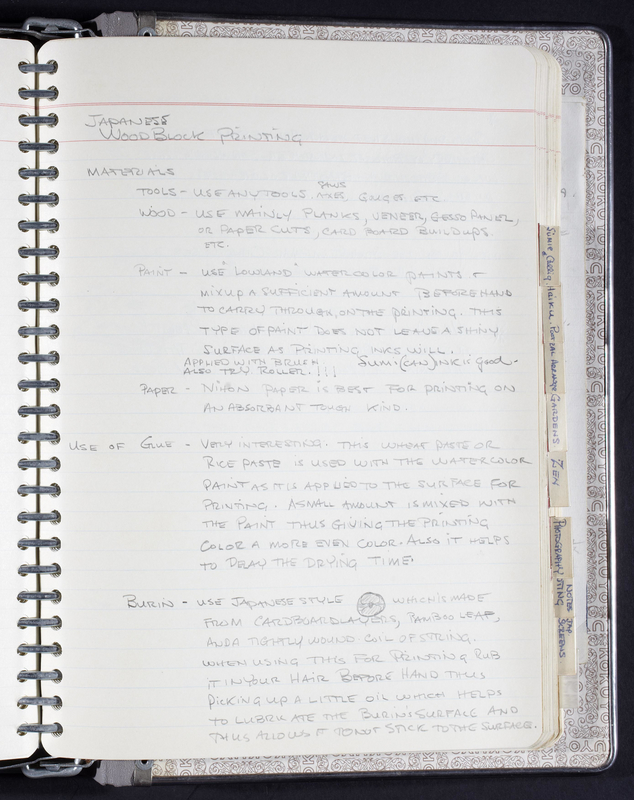 JAPANESE
WOOD BLOCK PRINTING
MATERIALS
TOOLS - USE ANY TOOLS. SAWS AXES, GOUGES ETC
WOOD - USE MAINLY PLANKS, VENEER, GESSO PANEL,
OR PAPER CUTS, CARD BOARD BUILDUPS.
ETC.
PAINT - USE WATERCOLOR PAINTS +
MIX UP A SUFFICIENT AMOUNT BEFORE HAND
TO CARRY THROUGH, ON THE PRINTING. THIS
TYPE OF PAINT DOES NOT LEAVE A SHINY
SURFACE AS PRINTING INKS WILL.
APPLIED WITH BRUSH SUMI (CAN) INK is good.
ALSO TRY ROLLER. !!!
PAPER - NIHON PAPER IS BEST FOR PRINTING ON
AN ABSORBANT TOUGH KIND.
USE OF GLUE - VERY INTERESTING. THIS WHEAT PASTE OR
RICE PASTE IS USED WITH THE WATERCOLOR
PAINT AS IT IS APPLIED TO THE SURFACE FOR
PRINTING. A SMALL AMOUNT IS MIXED WITH
THE PAINT THUS GIVING THE PRINTING
COLOR A MORE EVEN COLOR. ALSO IT HELPS
TO DELAY THE DRYING TIME.
BURIN - USE JAPANESE STYLE WHICH IS MADE
FROM CARDBOARD LAYERS, BAMBOO LEAF,
AND A TIGHTLY WOUND COIL OF STRING.
WHEN USING THIS FOR PRINTING RUB
IT IN YOUR HAIR BEFORE HAND THUS
PICKING UP A LITTLE OIL WHICH HELPS
TO LUBRICATE THE BURIN'S SURFACE AND
THUS ALLOWS IT TO NOT STICK TO THE SURFACE.
SUMIE HAIKU
GARDENS
ZEN
PHOTOGRAPHY
NOTES JAP
SCREENS